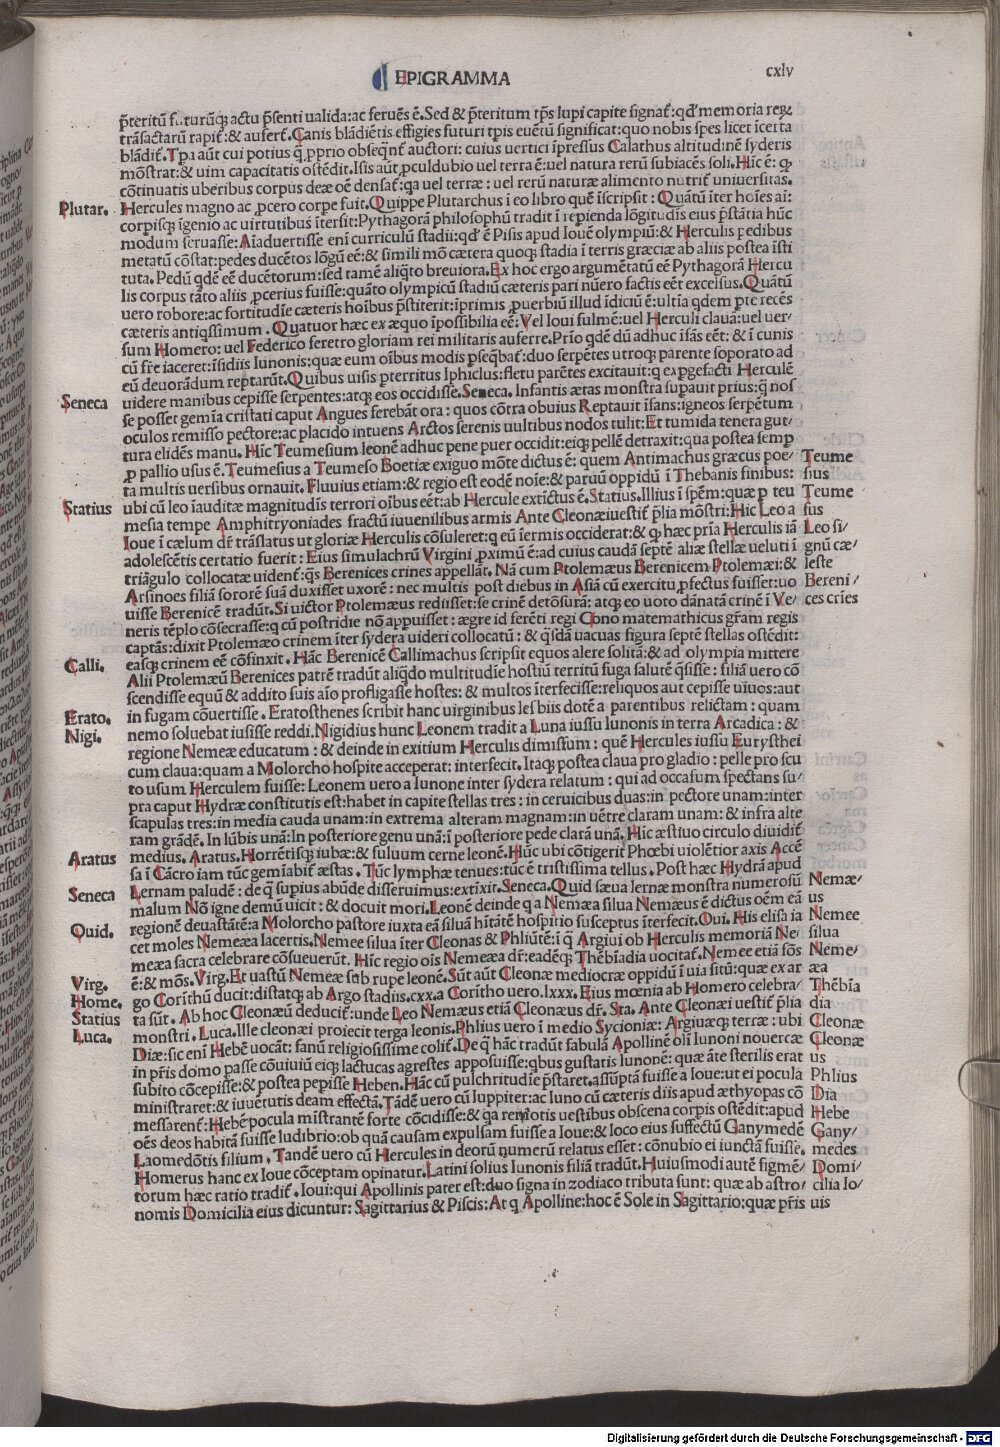 EPIGRAMMA
cxlv
p̄teritũ f.turũq; actu p̃senti ualida:ac feruẽs ẽ.Sed & p̃teritum tp̃s lupi capite signat᷒:qd᷒ memoria reꝝ
trãsactarũ rapit᷒:& aufert᷒.Canis blãdiẽtis effigies futuri tp̃is euẽtũ significat:quo nobis spes licet ĩcerta
blãdit᷒.Tpi aũt cui potius q̃ ꝓprio obseqñt᷒ auctori: cuius uertici ĩpressus Calathus altitudinẽ syderis
mõstrat:& uim capacitatis ostẽdit.Isis aũt ꝓculdubio uel terra ẽ:uel natura rerũ subiacẽs soli.Hĩc ẽ: ꝙ
cõtinuatis uberibus corpus deæ oẽ densat᷒:qa uel terræ : uel rerũ naturæ alimento nutrit᷒ uniuersitas.
Plutar. Hercules magno ac ꝓcero corpe fuit.Quippe Plutarchus ĩ eo libro quẽ ĩscripsit : Quãtũ iter hoĩes ai:
corpisq; ĩgenio ac uirtutibus ĩtersit:Pythagorã philosophũ tradit ĩ repienda lõgitudĩs eius p̃stãtia hũc
modum seruasse:Aiaduertisse enĩ curriculũ stadii:qd᷒ ẽ Pisis apud Iouẽ olympiũ:& Herculis pedibus
metatũ cõstat:pedes ducẽtos lõgũ eẽ:& simili mõ cætera quoq; stadia ĩ terris græciæ ab aliis postea ĩsti
tuta. Pedũ qdẽ eẽ ducẽtorum:sed tamẽ aliq̃to breuiora.Ex hoc ergo argumẽtatũ eẽ Pythagorã Hercu
lis corpus tãto aliis ꝓcerius fuisse:quãto olympicũ stadiũ cæteris pari nũero factis eẽt excelsius.Quãtũ
uero robore:ac fortitudĩe cæteris hoĩbus p̃stiterit:ĩprimis ꝓuerbiũ illud ĩdiciũ ẽ:ultĩa qdem pte recẽs
cæteris antiqssimum . Quatuor hæc ex æquo ĩpossibilia eẽ:Vel Ioui fulmẽ:uel Herculi clauã:uel uer/
sum Homero: uel Federico feretro gloriam rei militaris auferre.Prio qdẽ dũ adhuc ĩsãs eẽt: & ĩ cunis
cũ fr̃e iaceret:ĩsidiis Iunonis:quæ eum oĩbus modis ꝑseq̃bat᷒:duo serpẽtes utroq; parente soporato ad
eũ deuorãdum reptarũt.Quibus uisis pterritus Iphiclus:fletu parẽtes excitauit:q exꝑgefacti Herculẽ
Seneca uidere manibus cepisse serpentes:atq; eos occidisse.Seneca. Infantis ætas monstra supauit prius:q̃ nos
se posset gemĩa cristati caput Angues ferebãt ora : quos cõtra obuius Reptauit ĩfans:igneos serpẽtum
oculos remisso pectore:ac placido intuens Arctos serenis uultibus nodos tulit:Et tumida tenera gut/
tura elidẽs manu. Hĩc Teumesium leonẽ adhuc pene puer occidit:eiq; pellẽ detraxit:qua postea semp
ꝓ pallio usus ẽ.Teumesius a Teumeso Boetiæ exiguo mõte dictus ẽ: quem Antimachus græcus poe/ Teume
ta multis uersibus ornauit. Fluuius etiam:& regio est eodẽ noĩe:& paruũ oppidũ ĩ Thebanis finibus: sius
Statius ubi cũ leo ĩauditæ magnitudĩs terrori oĩbus eẽt:ab Hercule extĩctus ẽ.Statius.Illius ĩ spẽm:quæ ꝑ teu Teume
mesia tempe Amphitryoniades fractũ iuuenilibus armis Ante Cleonæi uestit᷒ p̃lia mõstri:Hic Leo a sus
Ioue ĩ cælum dr̃ trãslatus ut gloriæ Herculis cõsuleret:q eũ ĩermis occiderat:& ꝙ hæc pr̃ia Herculis iã Leo si/
adolescẽtis certatio fuerit : Eius simulachrũ Virgini ꝓximũ ẽ:ad cuius caudã septẽ aliæ stellæ ueluti ĩ gnũ cæ/
triãgulo collocatæ uident᷒:q̃s Berenices crines appellãt. Nã cum Ptolemæus Berenicem Ptolemæi:& leste
Arsinoes filiã sororẽ suã duxisset uxorẽ: nec multis post diebus in Asiã cũ exercitu ꝓfectus fuisset:uo Bereni/
uisse Berenicẽ tradũt.Si uictor Ptolemæus rediisset:se crinẽ detõsurã: atq; eo uoto dãnatã crinẽ ĩ Ve/ ces crĩes
neris tẽplo cõsecrasse:q cũ postridie nõ appuisset : ægre id ferẽti regi Cono matemathicus gr̃am regis
captãs:dixit Ptolemæo crinem ĩter sydera uideri collocatũ : & q̃sdã uacuas figura septẽ stellas ostẽdit:
Calli. easq; crinem eẽ cõfinxit. Hãc Berenicẽ Callimachus scripsit equos alere solitã:& ad olympia mittere
Alii Ptolemæũ Berenices patrẽ tradũt aliq̃do multitudĩe hostiũ territũ fuga salutẽ q̃sisse : filiã uero cõ
scendisse equũ & addito suis aĩo profligasse hostes: & multos ĩterfecisse:reliquos aut cepisse uiuos:aut
Erato. in fugam cõuertisse . Eratosthenes scribit hanc uirginibus lesbiis dotẽ a parentibus relictam : quam
Nigi. nemo soluebat iusisse reddi.Nigidius hunc Leonem tradit a Luna iussu Iunonis in terra Arcadica : &
regione Nemeæ educatum : & deinde in exitium Herculis dimissum : quẽ Hercules iussu Eurysthei
cum claua:quam a Molorcho hospite acceperat: interfecit. Itaq; postea claua pro gladio : pelle pro scu
to usum Herculem fuisse: Leonem uero a Iunone inter sydera relatum : qui ad occasum spectans su/
pra caput Hydræ constitutis est:habet in capite stellas tres : in ceruicibus duas:in pectore unam:inter
scapulas tres:in media cauda unam:in extrema alteram magnam:in uẽtre claram unam: & infra alte
ram grãdẽ. In lũbis unã:In posteriore genu unã:ĩ posteriore pede clarã unã. Hic æstiuo circulo diuidit᷒
Aratus medius. Aratus.Horrẽtisq; iubæ:& fuluum cerne leonẽ.Hũc ubi cõtigerit Phœbi uiolẽtior axis Accẽ
sa ĩ Cãcro iam tũc gemĩabit᷒ æstas . Tũc lymphæ tenues:tũc ẽ tristissima tellus . Post hæc Hydrã apud
Seneca Lernam paludẽ : de q̃ supius abũde disseruimus:extĩxit.Seneca.Quid sæua lernæ monstra numerosũ Nemæ/
malum Nõ igne demũ uicit : & docuit mori.Leonẽ deinde q a Nemæa silua Nemæus ẽ dictus oẽm eã us
Quid. regionẽ deuastãtẽ:a Molorcho pastore iuxta eã siluã hĩtãtẽ hospitio susceptus ĩterfecit.Oui. His elisa ia Nemee
cet moles Nemeæa lacertis.Nemee silua ĩter Cleonas & Phliũtẽ:ĩ q̃ Argiui ob Herculis memoriã Ne silua
meæa sacra celebrare cõsueuerũt. Hĩc regio oĩs Nemeæa dr̃:eadẽq; Thẽbiadia uocitat᷒.Nemee etiã fõs Neme/
Virg. ẽ:& mõs.Virg.Et uastũ Nemeæ sub rupe leonẽ.Sũt aũt Cleonæ mediocræ oppidũ ĩ uia sitũ:quæ ex ar æa
Home. go Corĩthũ ducit:distatq; ab Argo stadiis.cxx.a Corĩtho uero.lxxx.Eius mœnia ab Homero celebra/ Thẽbia
Statius ta sũt. Ab hoc Cleonæũ deducit᷒:unde Leo Nemæus etiã Cleonæus dr̃. Sta. Ante Cleonæi uestit᷒ p̃lia dia
Luca. monstri . Luca.Ille cleonæi proiecit terga leonis.Phlius uero ĩ medio Sycioniæ: Argiuæq; terræ : ubi Cleonæ
Diæ:sic enĩ Hebẽ uocãt: fanũ religiosissime colit᷒.De q̃ hãc tradũt fabulã Apollinẽ olĩ Iunoni nouercæ Cleonæ
in pr̃is domo passe cõuiuiũ eiq; lactucas agrestes apposuisse:qbus gustatis Iunonẽ: quæ ãte sterilis erat us
subito cõcepisse:& postea pepisse Heben.Hãc cũ pulchritudĩe p̃staret.assũptã fuisse a Ioue:ut ei pocula Phlius
ministraret:& iuuẽtutis deam effectã.Tãdẽ uero cũ Iuppiter:ac Iuno cũ cæteris diis apud æthyopas cõ Dia
messarent᷒:Hebẽ pocula mĩstrantẽ forte cõcidisse:& qa remotis uestibus obscena corpis ostẽdit:apud Hebe
oẽs deos habitã fuisse ludibrio:ob quã causam expulsam fuisse a Ioue:& loco eius suffectũ Ganymedẽ Gany/
Laomedõtis filium . Tandẽ uero cũ Hercules in deorũ numerũ relatus esset : cõnubio ei iunctã fuisse. medes
Homerus hanc ex Ioue cõceptam opinatur. Latini solius Iunonis filiã tradũt.Huiusmodi autẽ figmẽ/ Domi/
torum hæc ratio tradit᷒. Ioui:qui Apollinis pater est:duo signa in zodiaco tributa sunt: quæ ab astro/ cilia Io/
nomis Domicilia eius dicuntur: Sagittarius & Piscis:At q Apolline:hoc ẽ Sole in Sagittario:quæ pr̃is uis
Digitalisierung gefördert durch die Deutsche Forschungsgemeinschaft - DFG